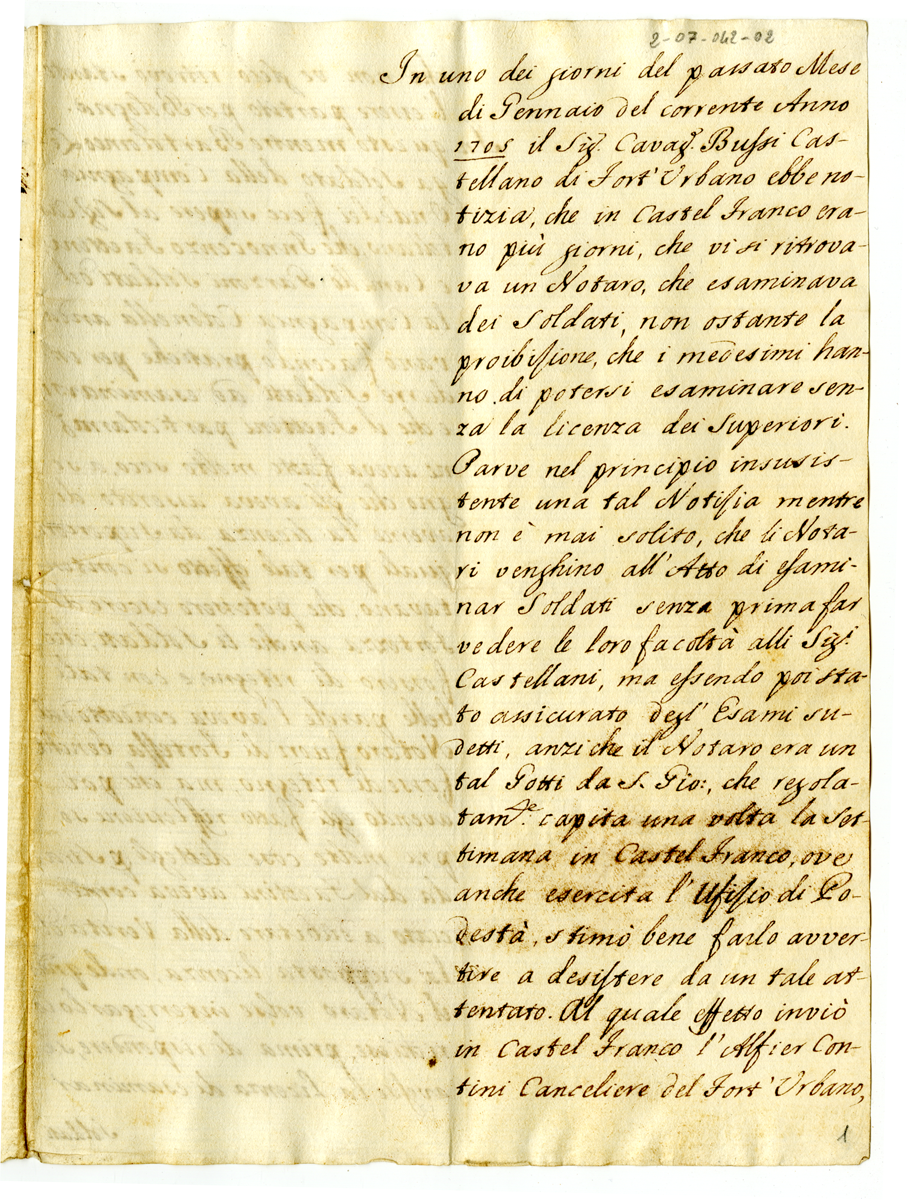 2-07-042-02
In uno dei giorni del passato Mese
di Gennaio del corrente Anno
1705 il Sig.r Cavag.r Bussi Cas-
tellano di Fort' Urbano ebbe no-
tizia, che in Castel Franco era-
no più giorni, che vi si ritrova-
va un Notaro, che esaminava
dei Soldati, non ostante la
proibissione, che i medesimi han-
no di potersi esaminare sen-
za la licenza dei Superiori.
Parve nel principio insusis-
tente una tal Notissia mentre
non è mai solito, che li Nota-
ri venghino all' Atto di essami-
nar Soldati senza prima far
vedere le loro facoltà alli Sig.i
Castellani, ma essendo poi sta-
to assicurato degl' Esami su-
detti, anzi che il Notaro era un
tal Gotti da S. Gio:, che regola-
tam.te capita una volta la Set-
timana in Castel Franco, ove
anche esercita l' Ufissio di Po-
destà, stimò bene farlo avver-
tire a desistere da un tale at-
tentato. Al quale effetto inviò
in Castel Franco l' Alfier Con-
tini Canceliere del Fort' Urbano,
1